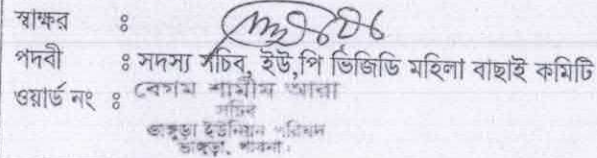 স্বাক্ষর :
পদবী : সদস্য সচিব, ইউ,পি ভিজিডি মহিলা বাছাই কমিটি
ওয়ার্ড নং :
বেগম শামীম আরা
সচিব
ভাঙ্গুড়া ইউনিয়ন পরিষদ
ভাঙ্গুড়া, পাবনা।